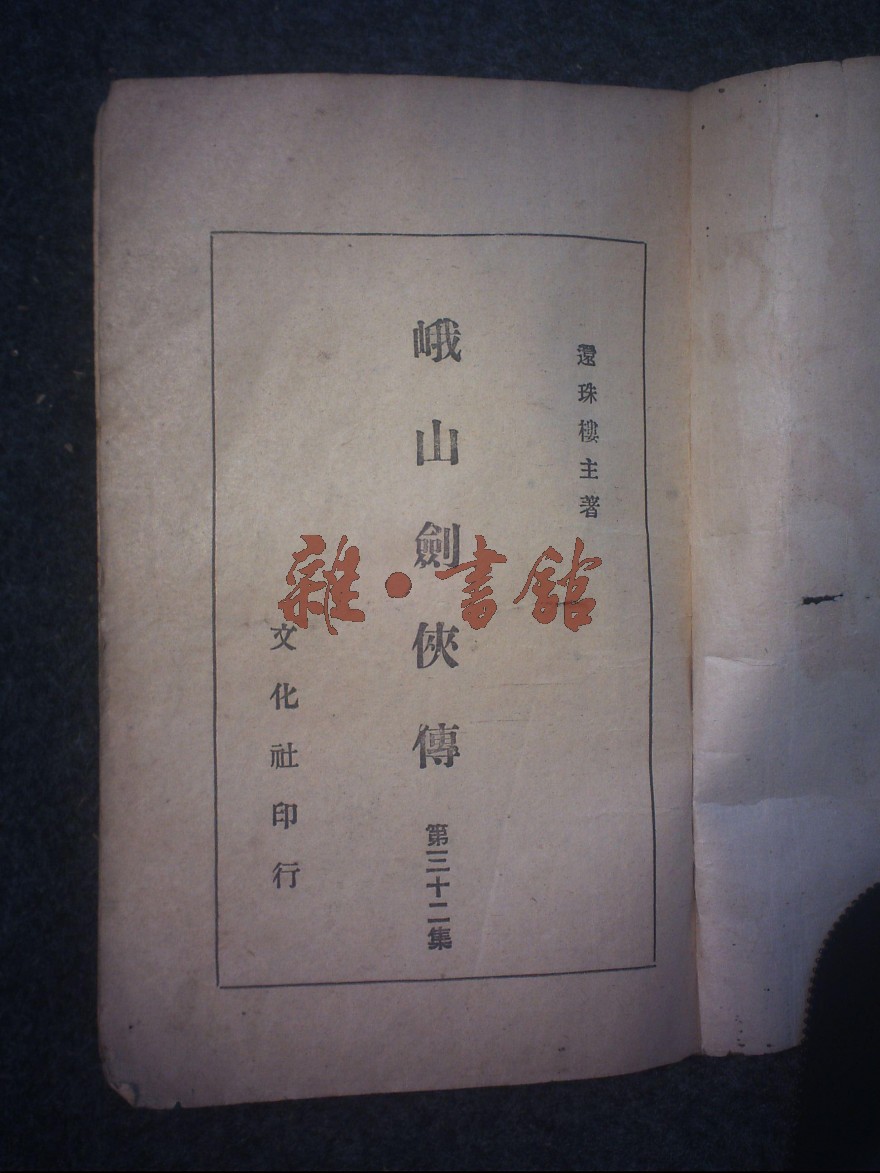 還珠樓主著
峨山劍俠傳 第三十二集
文化社印行
雜·書館